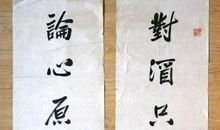 對酒只
論心原